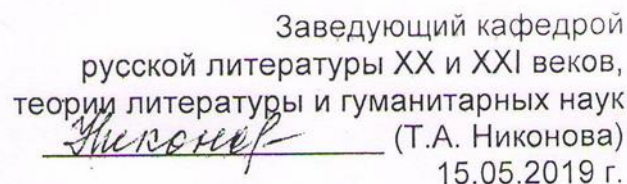 Заведующий кафедрой
русской литературы XX и XXI веков,
теории литературы и гуманитарных наук
(Т.А. Никонова)
15.05.2019 г.